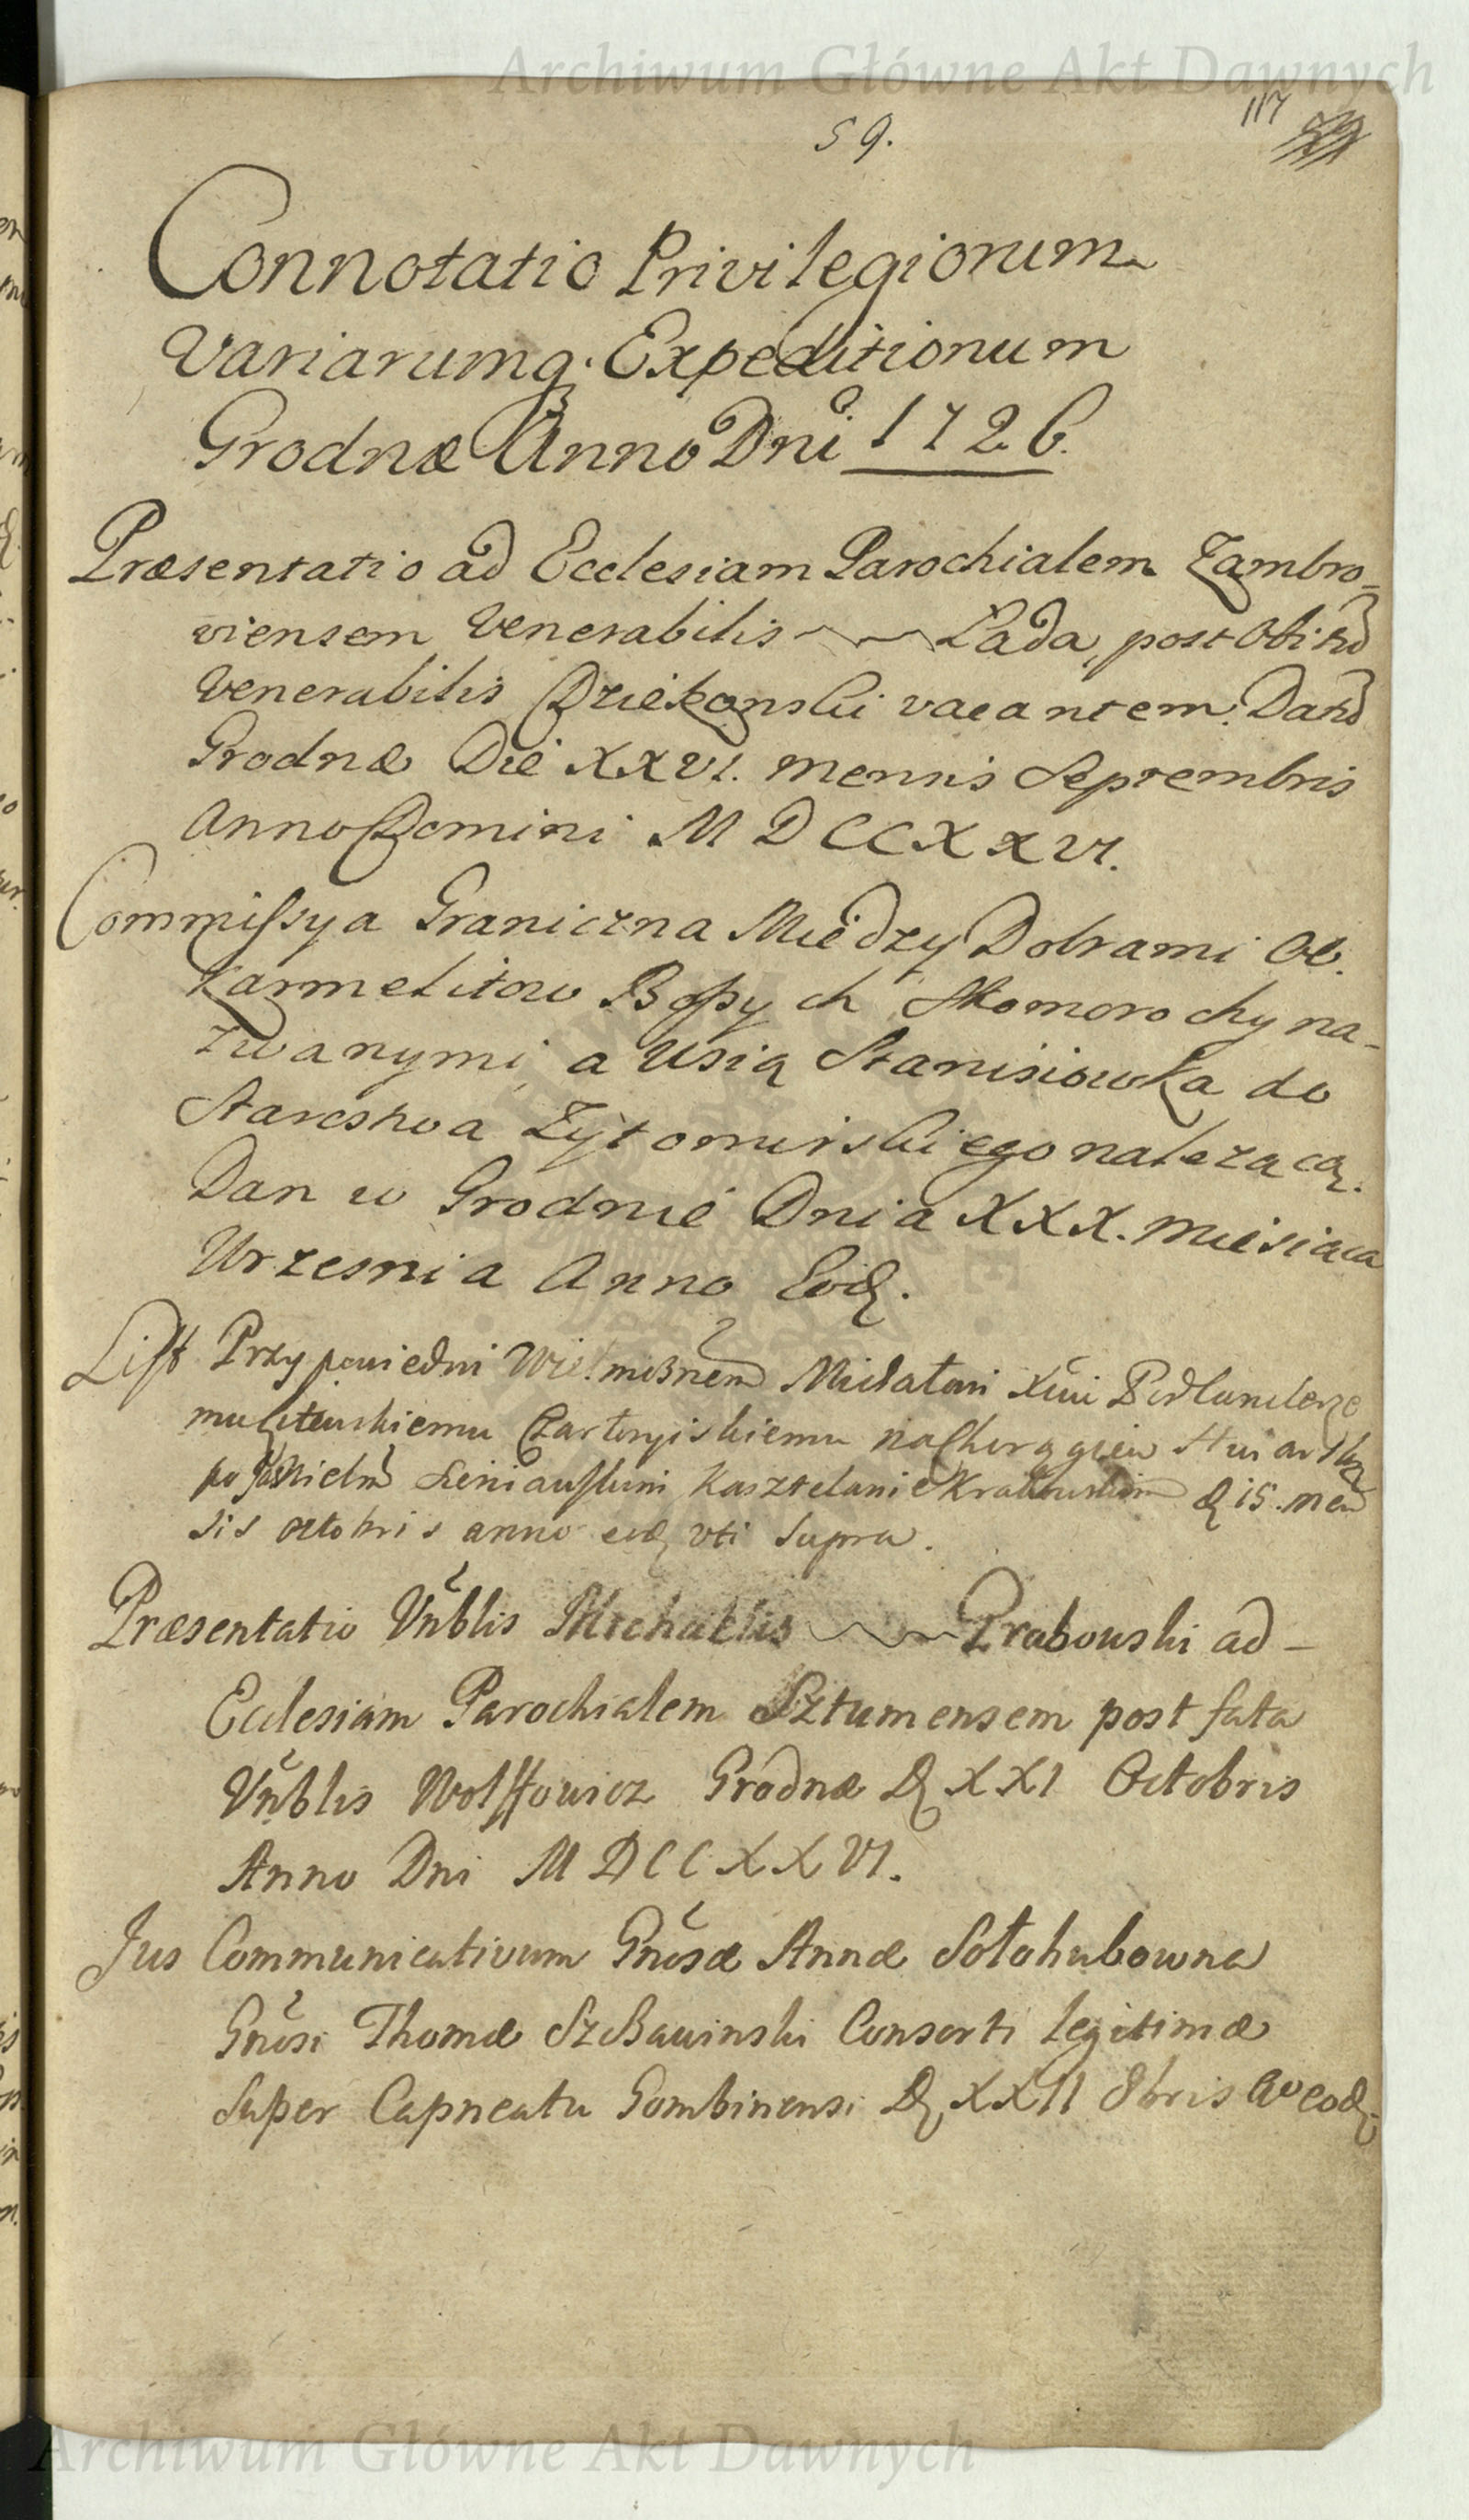 Archiwum Główne Akt Dawnych
59.
117
Connotatio Privilegiorum
Variarumq. Expeditionum
Grodnæ Anno Dni 1726.
Præsentatio ad Ecclesiam Parochialem Zambro-
viensem Venerabilis Łada, post obitū
Venerabilis Dziekonski vacantem. Datū
Grodnæ Die XXVI. mensis Septembris
Anno Domini MDCCXXVI.
Commissya Graniczna Między Dobrami OO.
Karmelitow Bossych Skomorochy na-
zwanymi, a Wsią Stanisiowka do
Starostwa Zytomirskiego nalezącą.
Dan w Grodnie Dnia XXX. Miesiąca
Wrzesnia Anno Eod.
List Przypowiedni Wielmożnemu Michałowi Xciu
Czartoryiskiemu
Sieniawskim Kasztelanie Krakowskim d 15. men
sis octobris anno eod uti supra.
Præsentatio Vnblis Michaelis Grabowski ad
Ecclesiam Parochialem Sztumensem post fata
Vnblis Wolffowicz Grodnæ d XXI Octobris
Anno Dni MDCCXXVI.
Jus Communicativum Gnosæ Annæ Sołohubowna
Gnosi Thomæ Szczawinski Consorti legitimæ
super Capneatu Gombinensi d XXII 8bris Ao eod.
Archiwum Główne Akt Dawnych